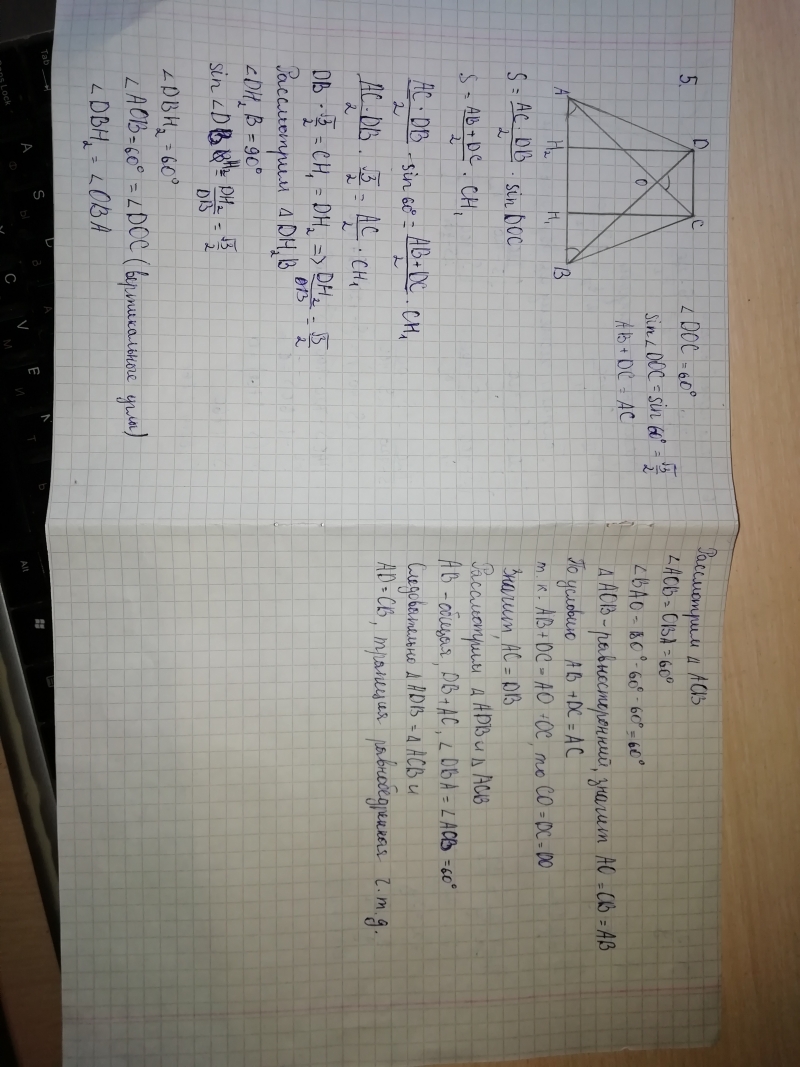 5.
D
C
O
A
H₂
H₁
B
∠DOC = 60°
sin∠DOC = sin 60° = √3/2
AB + DC = AC
S = AC · DB / 2 · sin DOC
S = AB + DC / 2 · CH₁
AC · DB / 2 · sin 60° = AB + DC / 2 · CH₁
AC · DB / 2 · √3/2 = AC/2 · CH₁
DB · √3/2 = CH₁ = DH₂ => DH₂/DB = √3/2
Рассмотрим △ DH₂B
∠DH₂B = 90°
sin∠DBH₂ = DH₂/DB = √3/2
∠DBH₂ = 60°
∠AOB = 60° = ∠DOC (вертикальные углы)
∠DBH₂ = ∠OBA
Рассмотрим △ AOB
∠AOB = OBA = 60°
∠BAO = 180° - 60° - 60° = 60°
△ AOB - равносторонний, значит AO = OB = AB
По условию AB + DC = AC
т. к. AB + DC = AO + OC, то CO = DC = DO
Значит, AC = DB
Рассмотрим △ ADB и △ ACB
AB - общая, DB + AC, ∠ DBA = ∠ AOB = 60°
Следовательно △ ADB = △ ACB и
AD = CB, трапеция равнобедренная ч. т. д.
Tab
Caps Lock
Alt
A
S
C
V
E